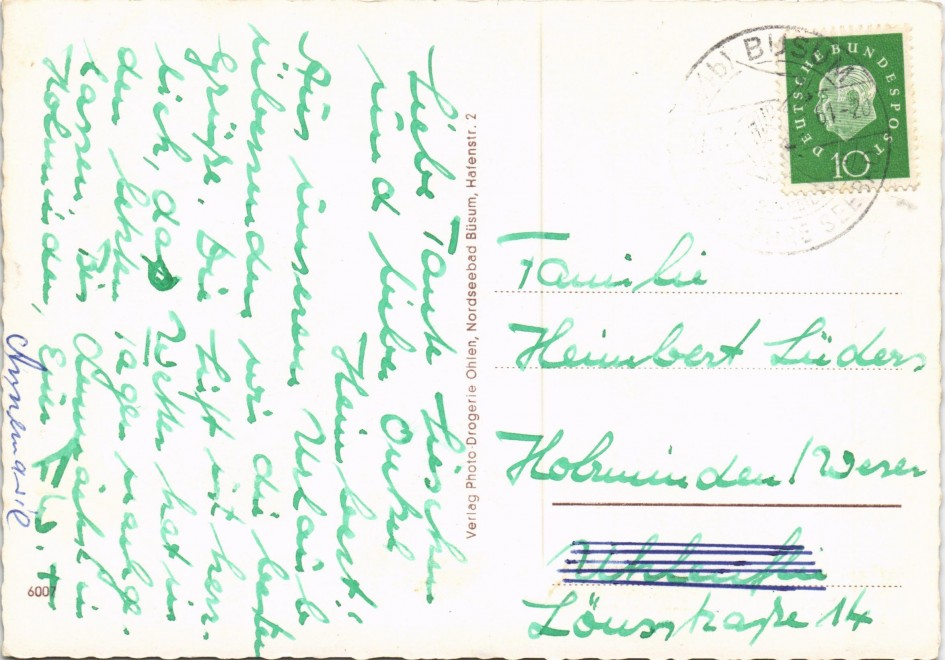 Liebe Tante Lieschen
und lieber Onkel
Heimbert!
Aus unserem Urlaub
übersenden wir die besten
Grüße. Die Luft ist herr-
lich, das Wetter hat in
den letzten Tagen nachge-
lassen. Bis demnächst in
Holzminden, Eure
Annemarie
6007
Verlag Photo-Drogerie Ohlen, Nordseebad Büsum, Hafenstr. 2
BÜSUM
DEUTSCHE BUNDESPOST
10
Familie
Heimbert Lüders
Holzminden/Weser
Lönsstraße 14